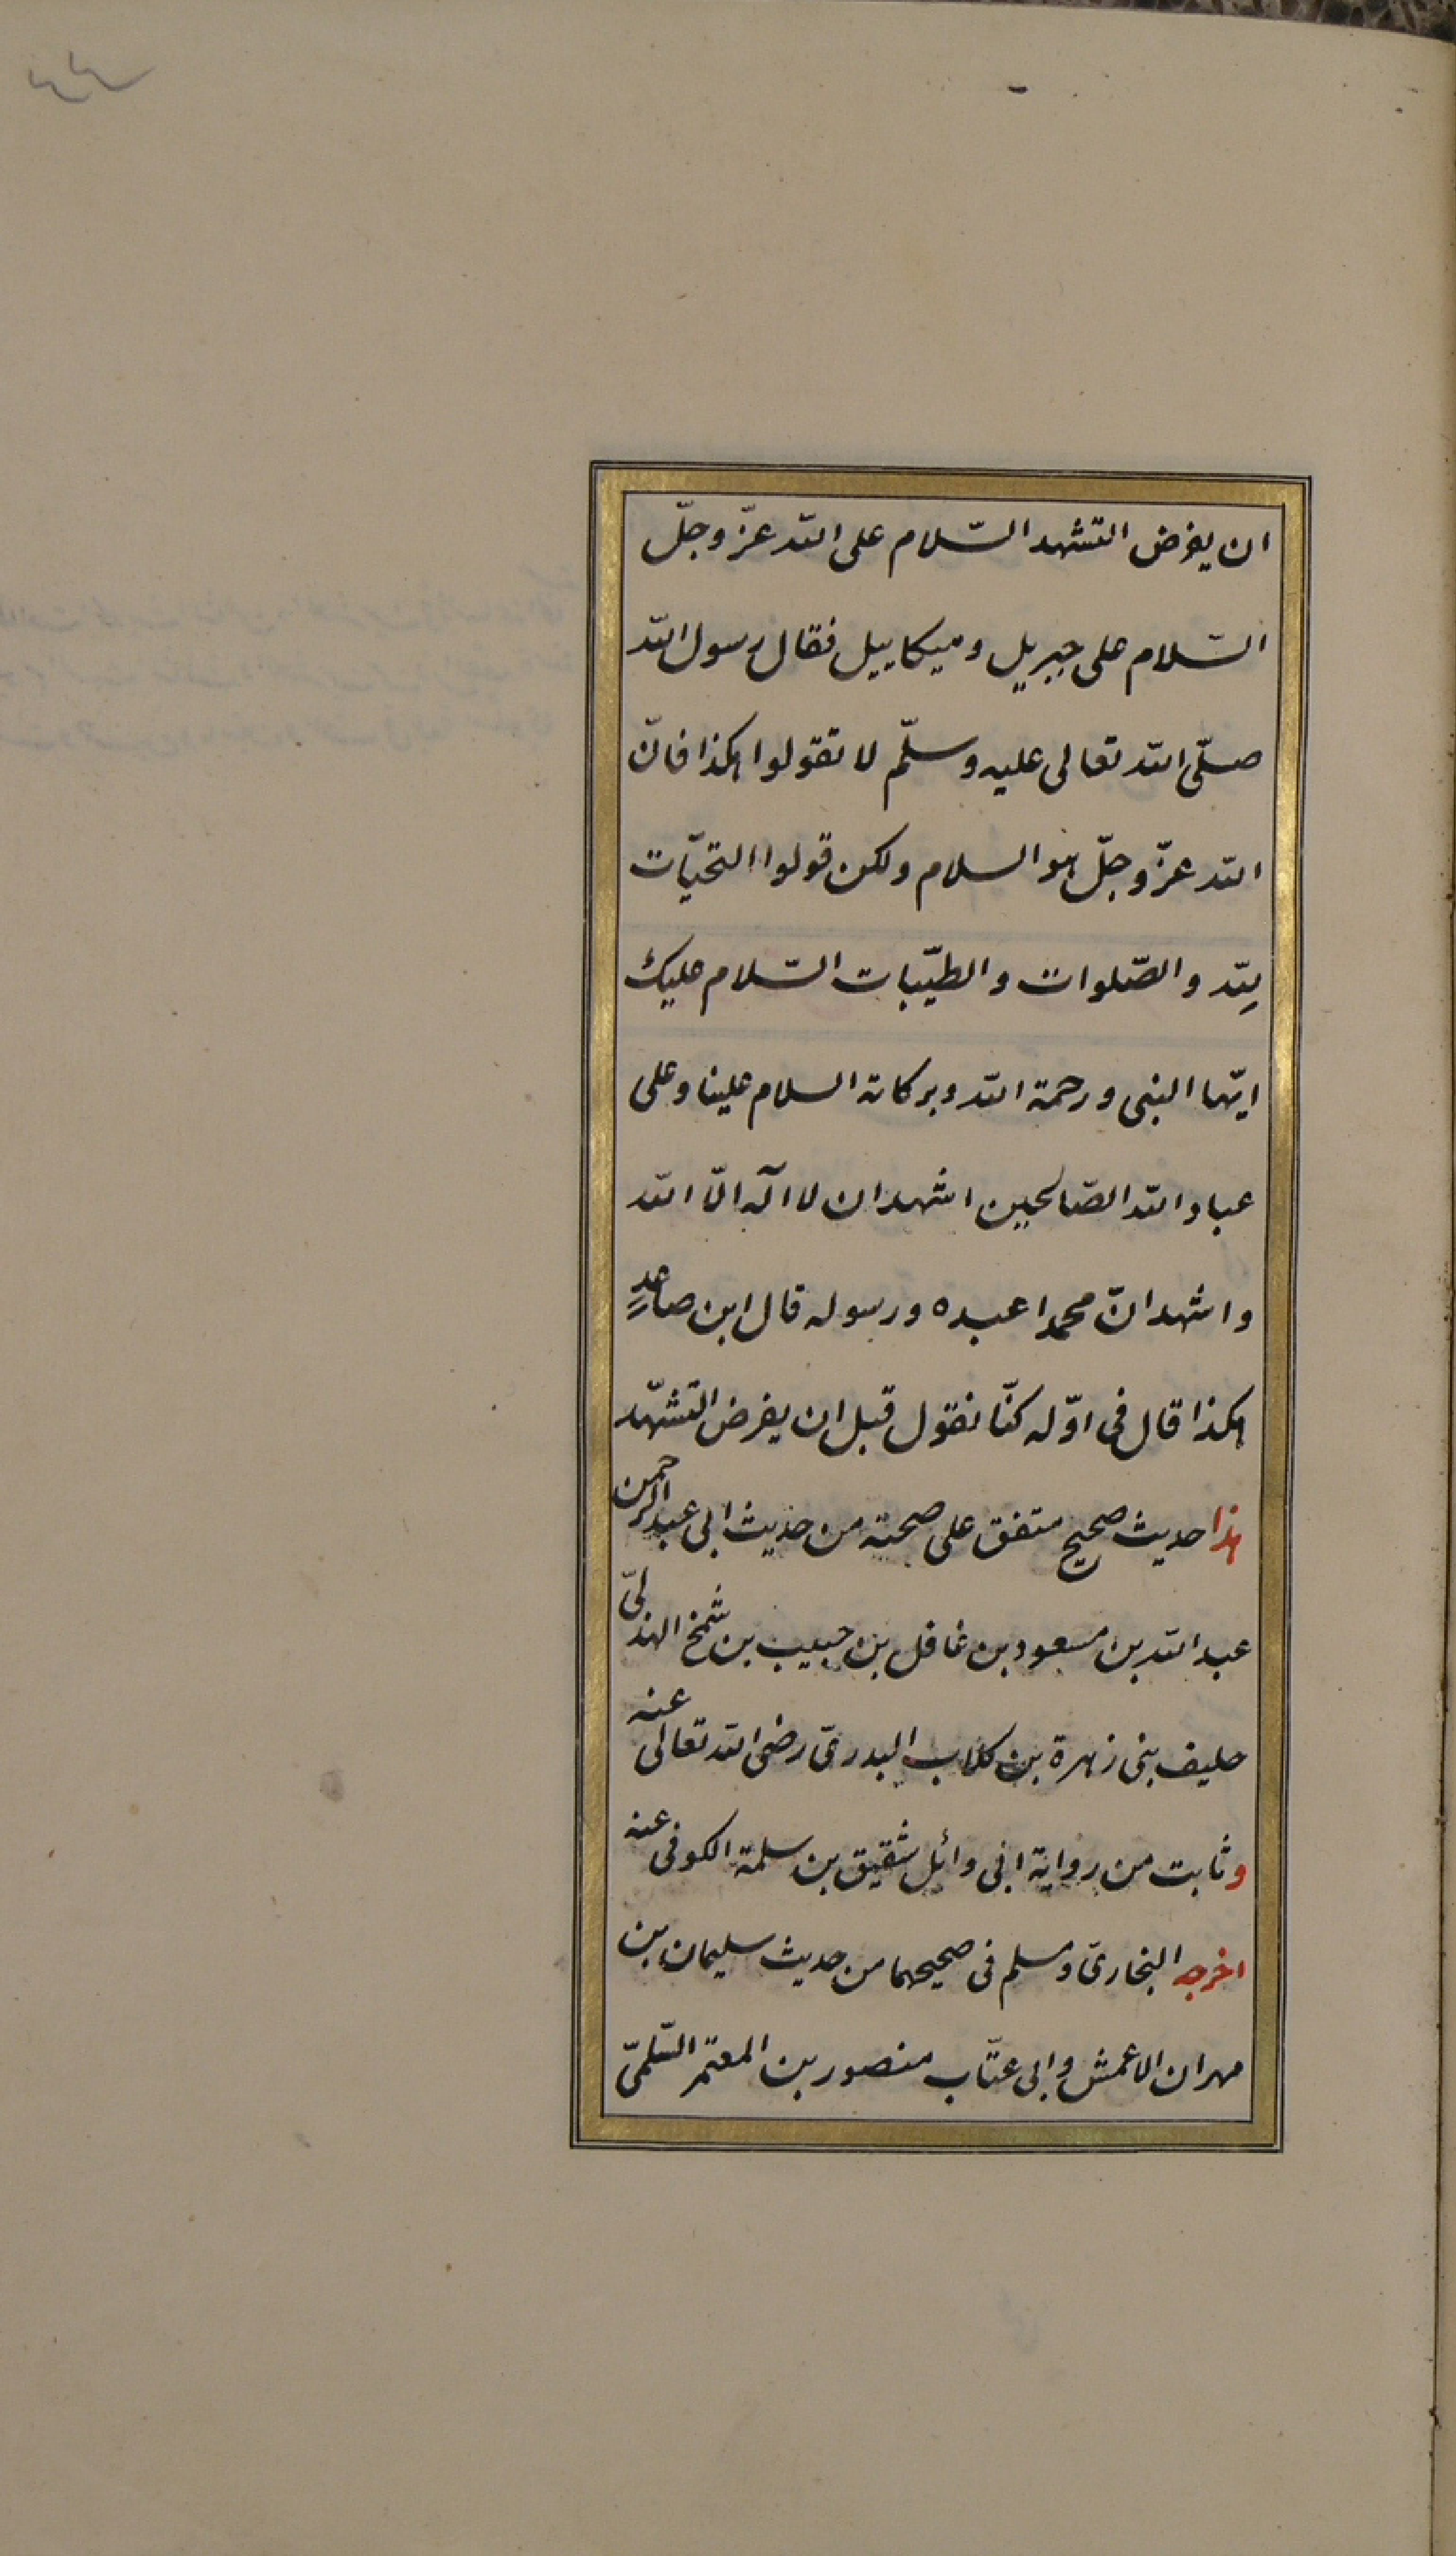 ان يفرض التشهد السّلام على الله عزّ وجلّ
السّلام على جبريل وميكاييل فقال رسول الله
صلّى الله تعالى عليه وسلّم لا تقولوا هكذا فانّ
الله عزّ وجلّ هو السلام ولكن قولوا التحيّات
لِلّه والصّلوات والطيّبات السّلام عليك
ايّها النبى ورحمة الله وبركاته السلام علينا وعلى
عباد الله الصّالحين اشهد ان لا اله الّا الله
واشهد انّ محمدا عبده ورسوله قال ابن صاعدٍ
هكذا قال فى اوّله كنّا نقول قبل ان يفرض التشهّد
هذا حديث صحيح متفق على صحته من حديث ابى عبد الرحمن
عبد الله بن مسعود بن غافل بن حبيب بن شمخ الهذلىّ
حليف بنى زهرة بن كلاب البدرىّ رضى الله تعالى عنه
وثابت من رواية ابى وائل شقيق بن سلمة الكوفى عنه
اخرجه البخارىّ ومسلم فى صحيحهما من حديث سليمان بن
مهران الاعمش وابى عتّاب منصور بن المعتمر السّلمىّ